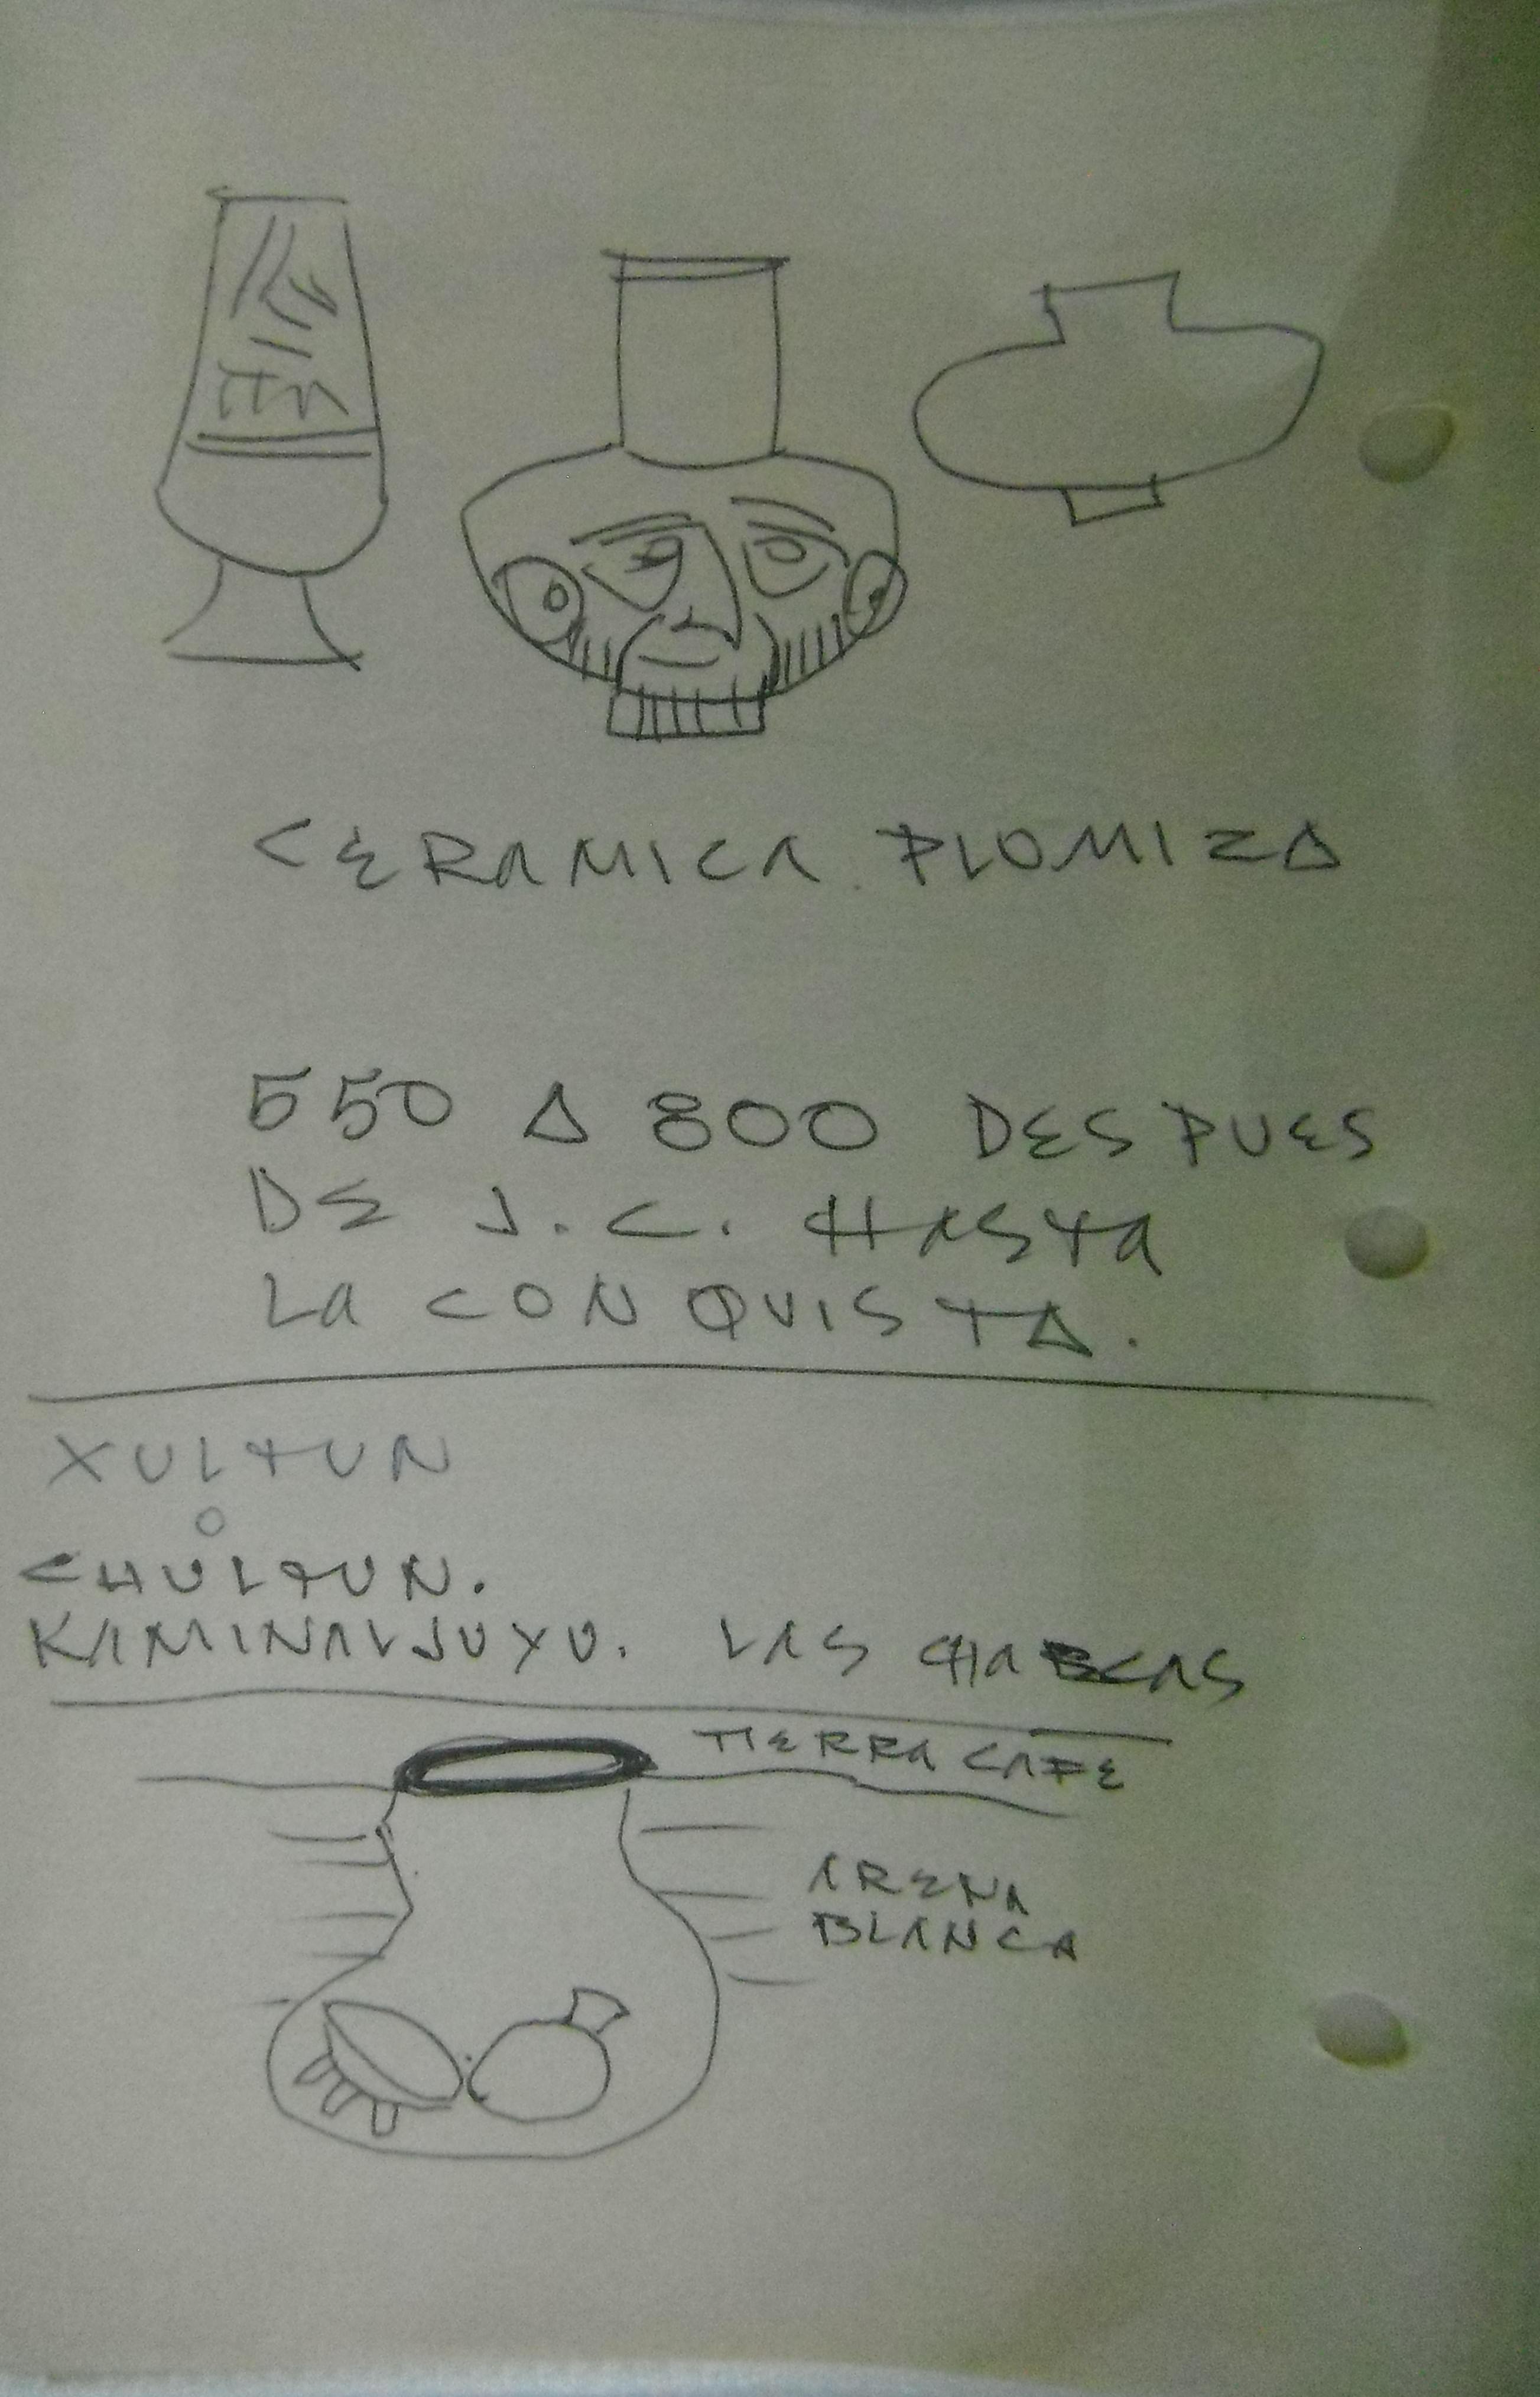 CERAMICA PLOMIZA
550 A 800 DESPUES
DE J.C. HASTA
LA CONQUISTA.
XULTUN
O
CHULTUN.
KAMINALJUYU. LAS CHARCAS
TIERRA CAFE
ARENA
BLANCA